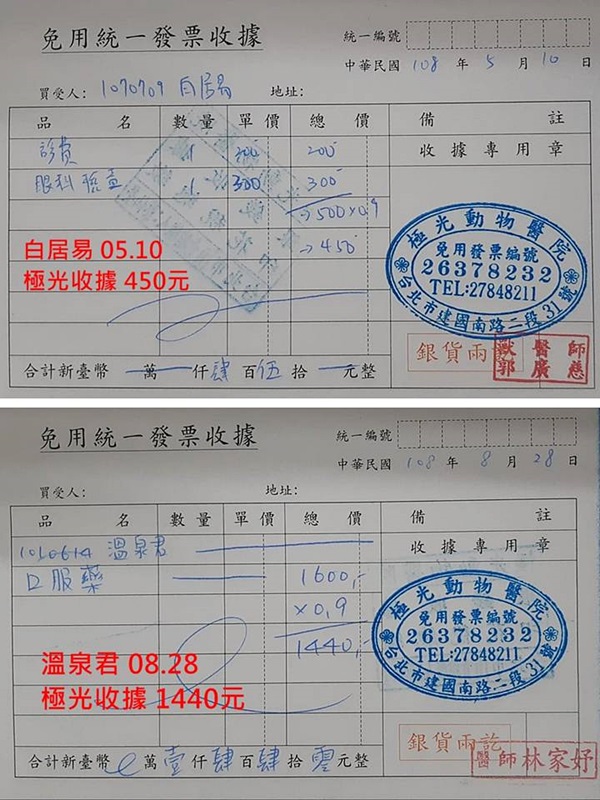 免用統一發票收據
統一編號
中華民國 108 年 5 月 10 日
買受人: 1070709 白居易 地址:
品名 數量 單價 總價 備註
診費 1 200 200 收據專用章
眼科檢查 1 300 300
→500×0.9
→450
白居易 05.10
極光收據 450元
極光動物醫院
免用發票編號
26378232
TEL:27848211
台北市建國南路二段31號
銀貨兩訖
獸醫師
郭廣慈
合計新臺幣 萬 仟 肆 百 伍 拾 元整
免用統一發票收據
統一編號
中華民國 108 年 8 月 28 日
買受人: 地址:
品名 數量 單價 總價 備註
1010614 溫泉君 收據專用章
口服藥 1600,-
×0.9
1440,-
溫泉君 08.28
極光收據 1440元
極光動物醫院
免用發票編號
26378232
TEL:27848211
台北市建國南路二段31號
銀貨兩訖
醫師林家妤
合計新臺幣 萬 壹 仟 肆 百 肆 拾 零 元整